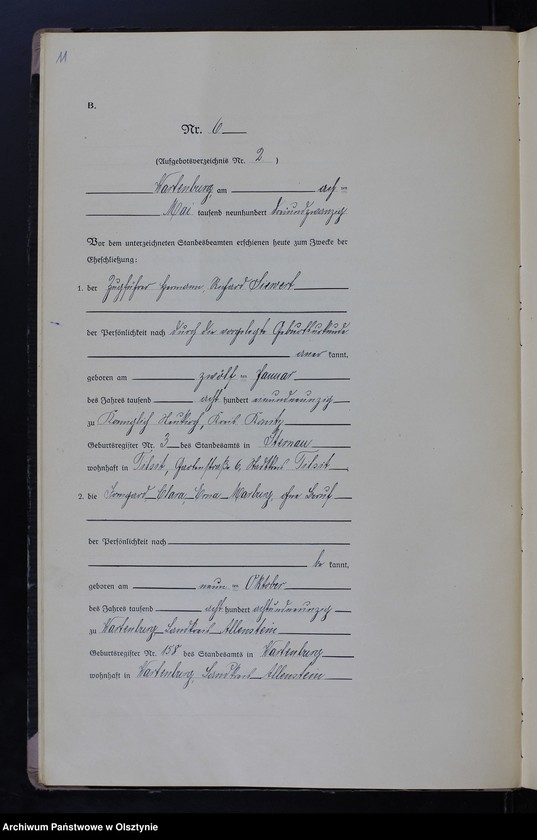 11
B.
Nr. 6
(Aufgebotsverzeichnis Nr. 2)
Wartenburg, am acht ten
Mai tausend neunhundert dreiundzwanzig
Vor dem unterzeichneten Standesbeamten erschienen heute zum Zwecke der
Eheschließung:
1. der Zugführer Hermann, Richard Siewert
der Persönlichkeit nach durch die vorgelegte Geburtsurkunde
aner kannt,
geboren am zwölf ten Januar
des Jahres tausend acht hundert neunundneunzig
zu Königlich Neukirch, Kreis Konitz
Geburtsregister Nr. 3 des Standesamts in Sternau
wohnhaft in Tilsit, Gartenstraße 6, Stadtkreis Tilsit
2. die Irmgard Clara, Erna Marburg, ohne Beruf
der Persönlichkeit nach
be kannt,
geboren am neun ten Oktober
des Jahres tausend acht hundert achtundneunzig
zu Wartenburg Landkreis Allenstein
Geburtsregister Nr. 158 des Standesamts in Wartenburg
wohnhaft in Wartenburg, Landkreis Allenstein
Archiwum Państwowe w Olsztynie